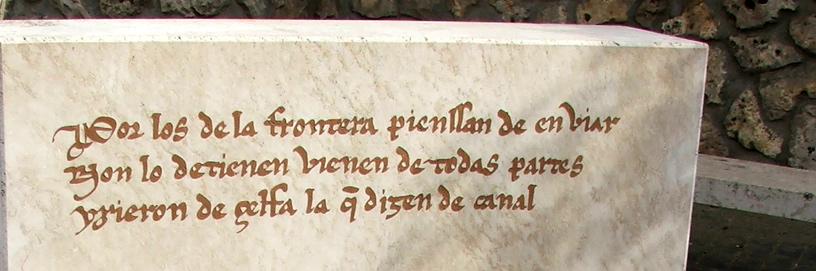 Por los de la frontera pienssan de enviar
Non lo detienen vienen de todas partes
yxieron de gelfa la q̃ dizen de canal